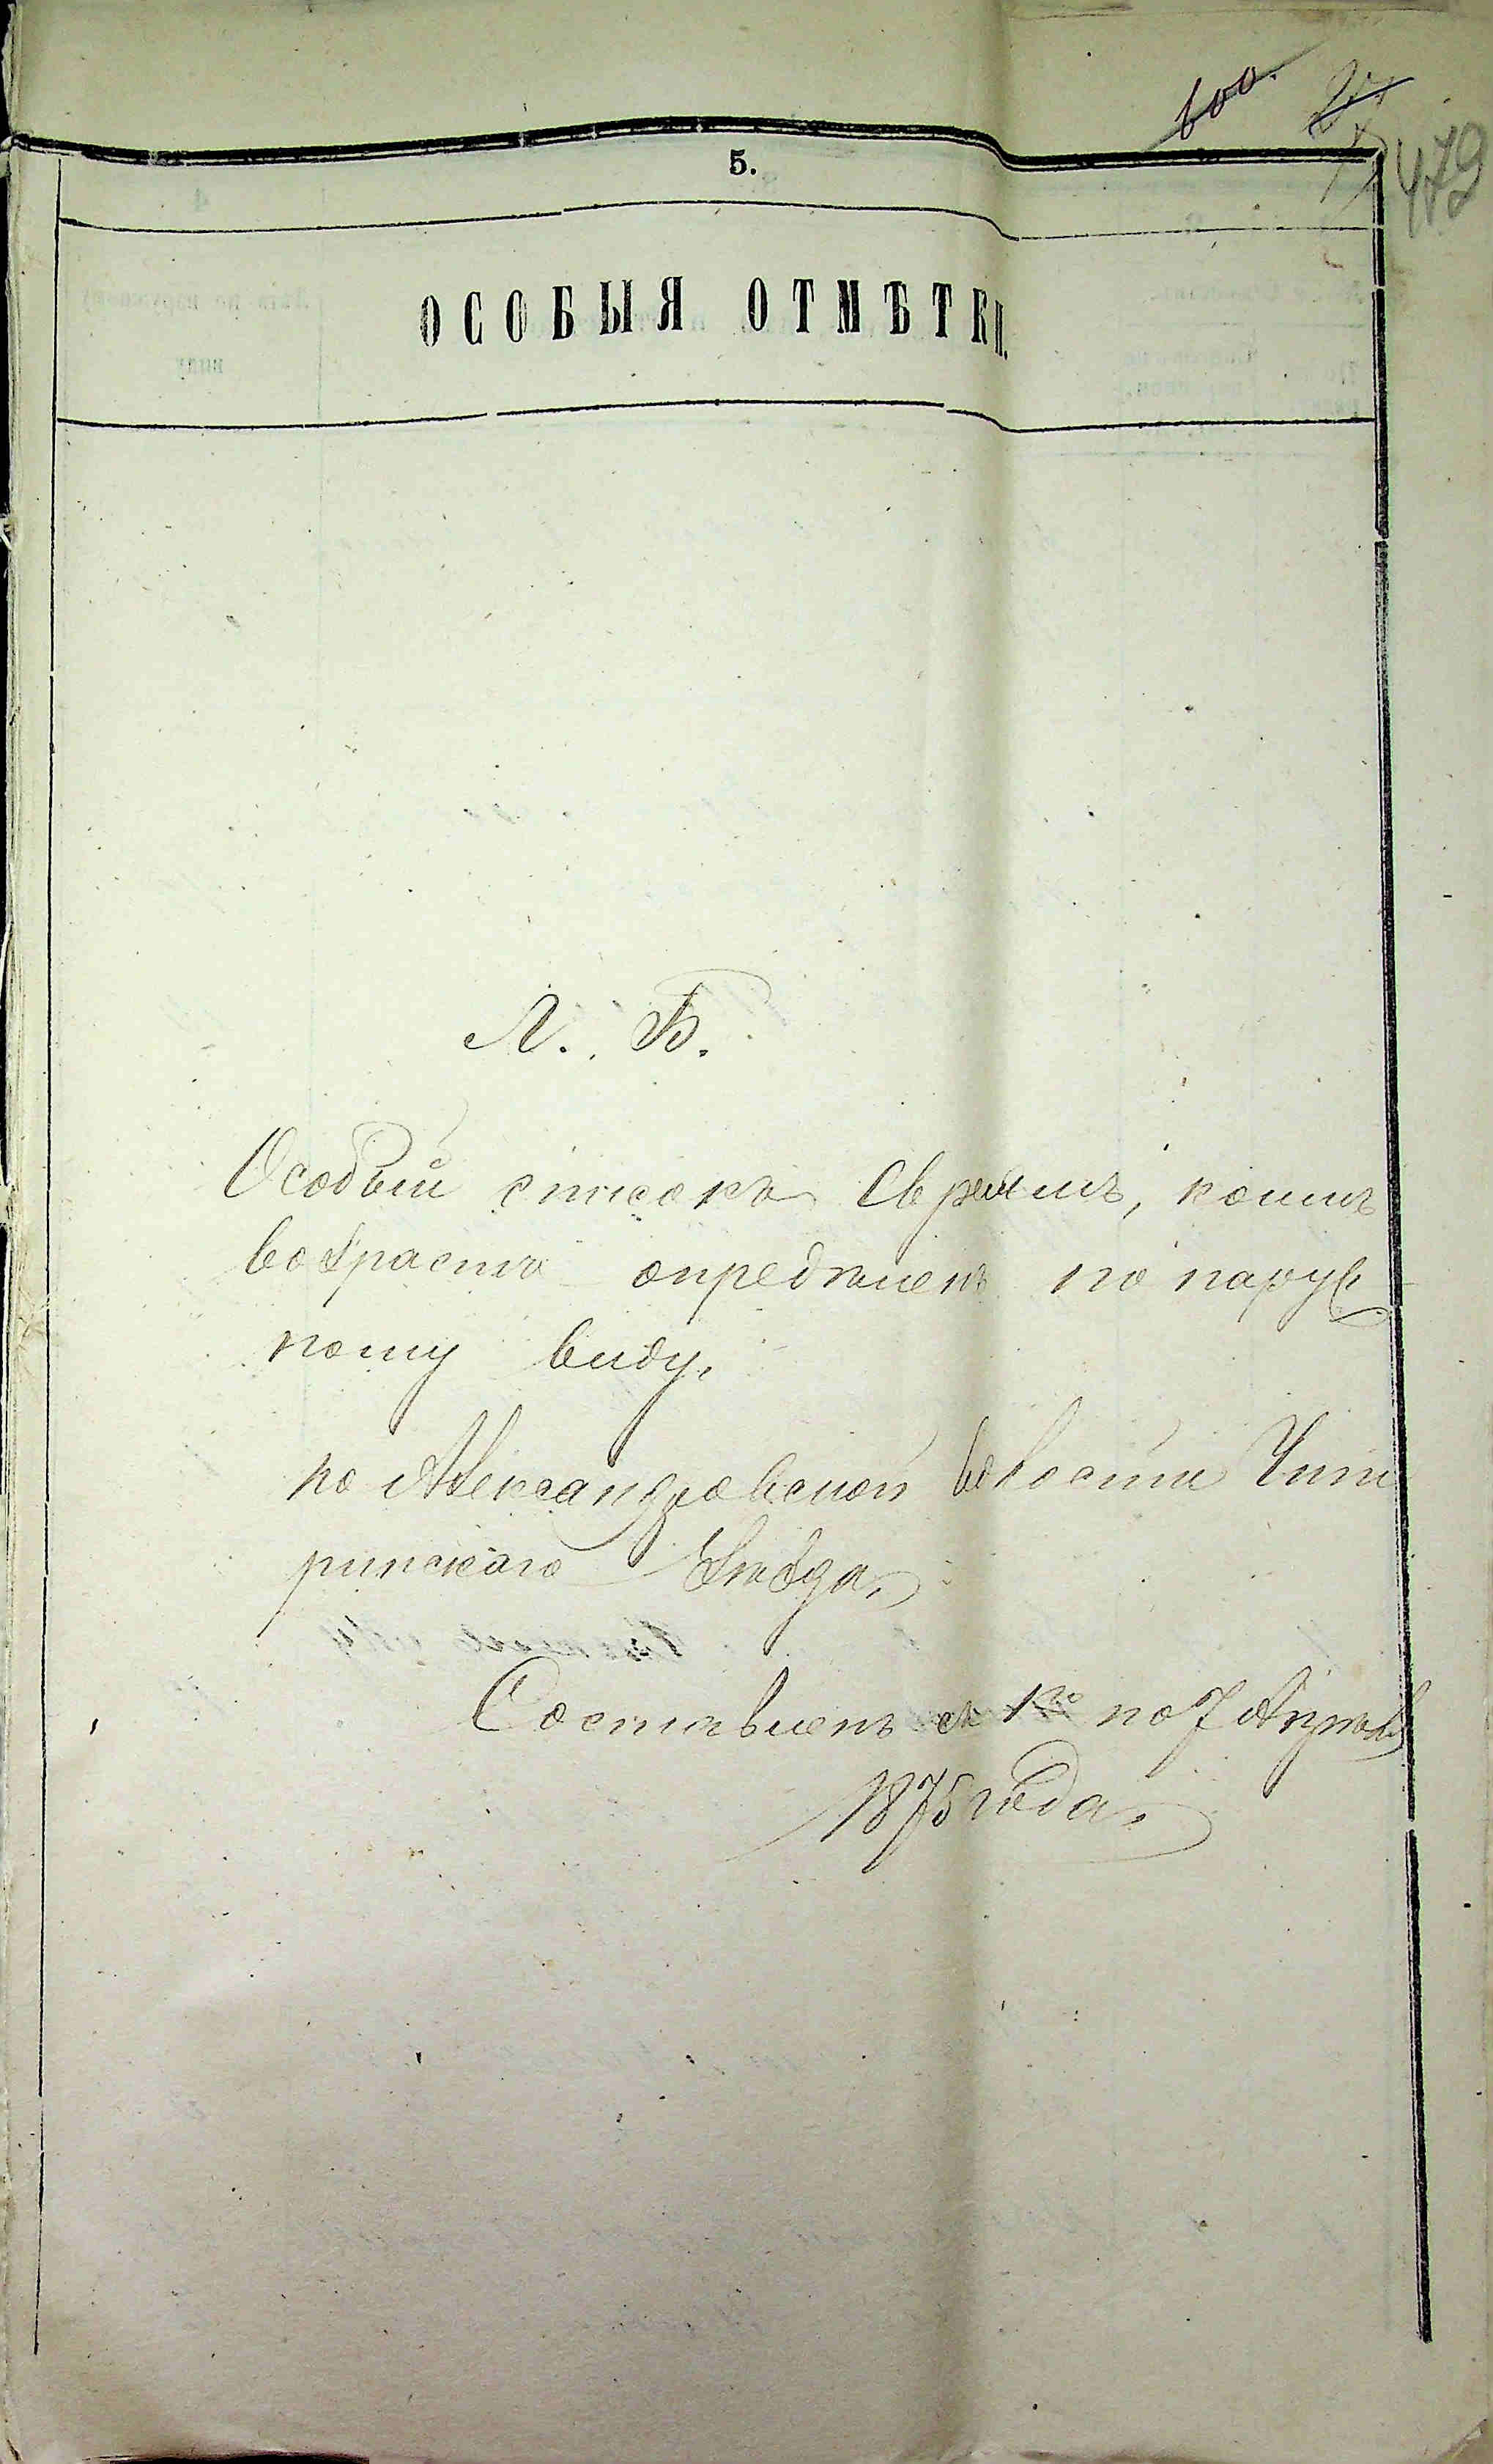 600.
479
5.
ОСОБЫЯ ОТМѢТКИ.
Л. Б.
Особый списокъ Евреямъ, коимъ
возрастъ опредѣленъ по наруж
ному виду.
по Александровской волости Чиги
ринскаго Уѣзда.
Составленъ съ 1го по 7 Апрѣля
1875 года.